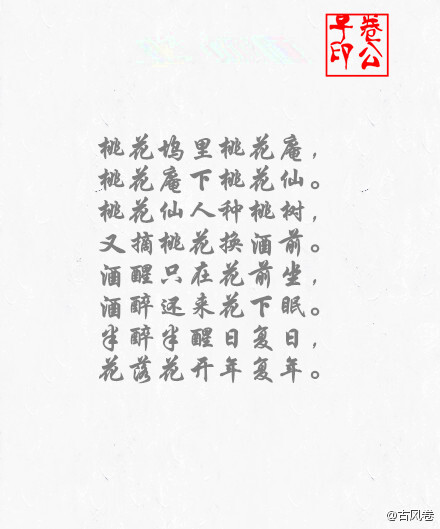 卷公子印
桃花坞里桃花庵，
桃花庵下桃花仙。
桃花仙人种桃树，
又摘桃花换酒前。
酒醒只在花前坐，
酒醉还来花下眠。
半醉半醒日复日，
花落花开年复年。
@古风卷